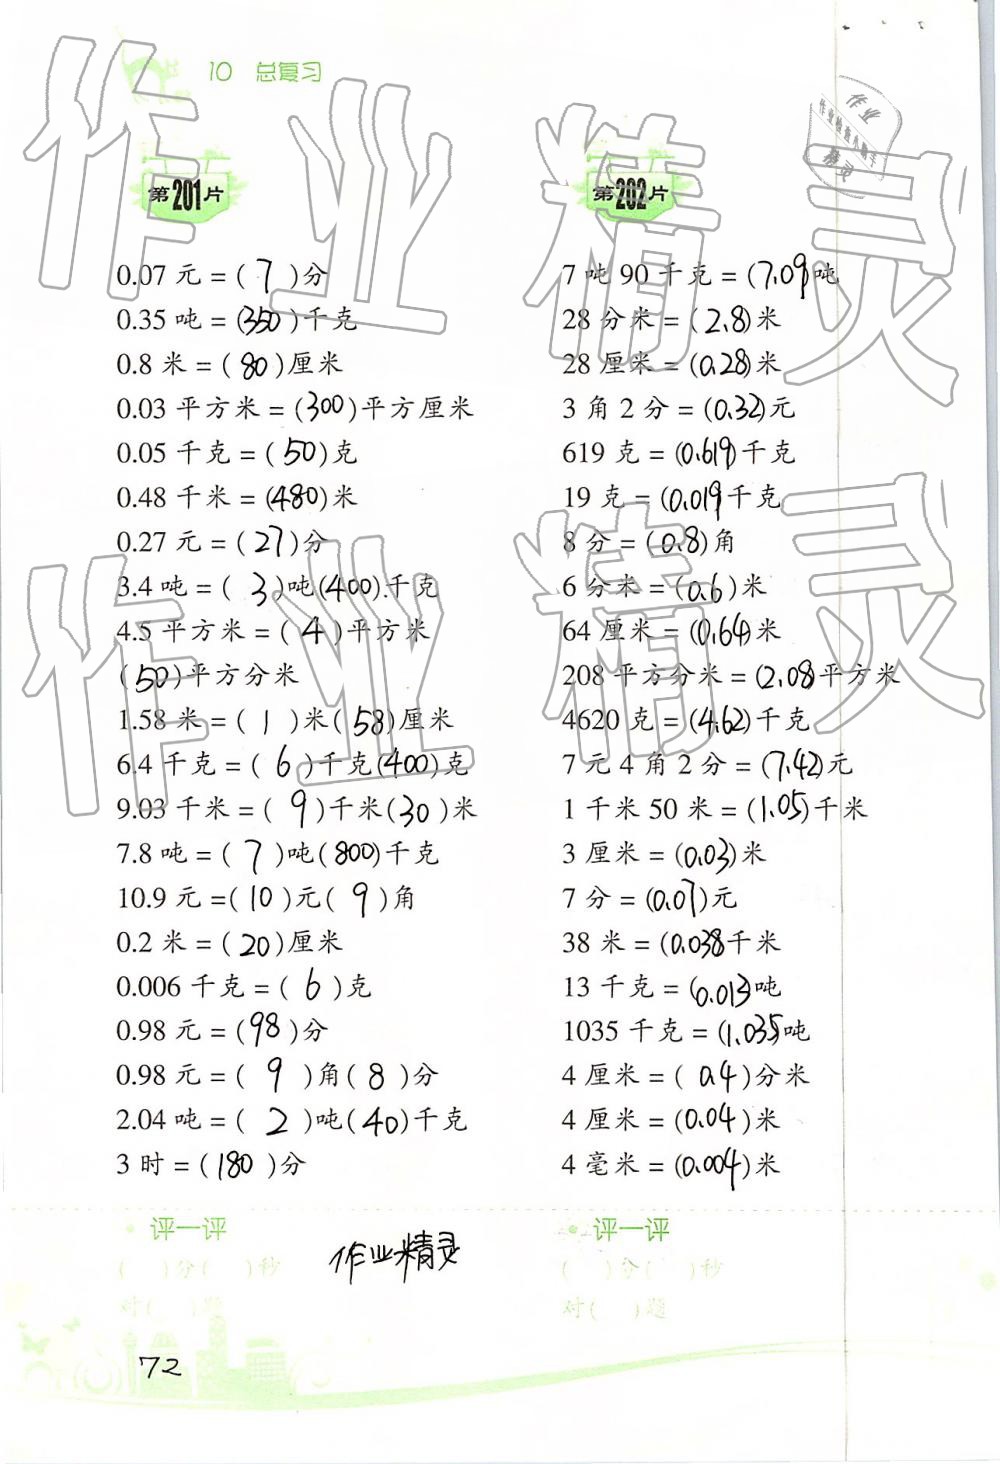 10 总复习
第201片
0.07 元 = ( 7 )分
0.35 吨 = (350)千克
0.8 米 = ( 80 )厘米
0.03 平方米 = (300)平方厘米
0.05 千克 = ( 50 )克
0.48 千米 = (480)米
0.27 元 = ( 27 )分
3.4 吨 = ( 3 )吨(400)千克
4.5 平方米 = ( 4 )平方米
( 50 )平方分米
1.58 米 = ( 1 )米( 58 )厘米
6.4 千克 = ( 6 )千克(400)克
9.03 千米 = ( 9 )千米( 30 )米
7.8 吨 = ( 7 )吨(800)千克
10.9 元 =( 10 )元( 9 )角
0.2 米 = ( 20 )厘米
0.006 千克 = ( 6 )克
0.98 元 = ( 98 )分
0.98 元 = ( 9 )角( 8 )分
2.04 吨 = ( 2 )吨( 40 )千克
3 时 = ( 180 )分
评一评
( )分( )秒
对( )题
第202片
7 吨 90 千克 = (7.09)吨
28 分米 = ( 2.8 )米
28 厘米 = (0.28)米
3 角 2 分 = (0.32)元
619 克 = (0.619)千克
19 克 = (0.019)千克
8 分 = ( 0.8 )角
6 分米 = ( 0.6 )米
64 厘米 = (0.64)米
208 平方分米 = (2.08)平方米
4620 克 = (4.62)千克
7 元 4 角 2 分 = (7.42)元
1 千米 50 米 = (1.05)千米
3 厘米 = (0.03)米
7 分 = (0.07)元
38 米 = (0.038)千米
13 千克 = (0.013)吨
1035 千克 = (1.035)吨
4 厘米 = ( 0.4 )分米
4 厘米 = (0.04)米
4 毫米 = (0.004)米
评一评
( )分( )秒
对( )题
作业精灵
72
作业精灵
作业精灵
作业
精灵